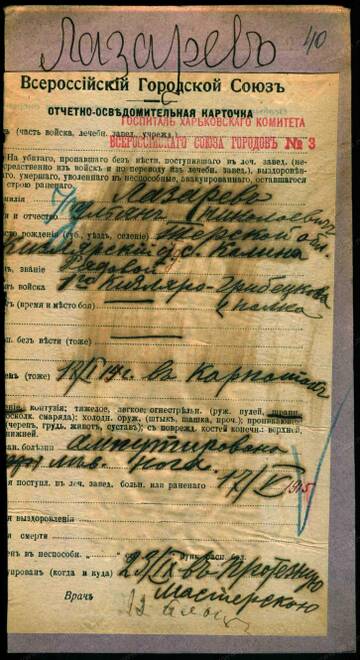 Лазаревъ 40
Всероссійскій Городской Союзъ
ОТЧЕТНО-ОСВѢДОМИТЕЛЬНАЯ КАРТОЧКА
ГОСПИТАЛЬ ХАРЬКОВСКАГО КОМИТЕТА
ъ (часть войска, лечебн. завед., учрежд.)
ВСЕРОССІЙСКАГО СОЮЗА ГОРОДОВЪ № 3
На убитаго, пропавшаго безъ вѣсти, поступившаго въ леч. завед. (не-
средственно изъ войскъ и по переводу изъ лечебн. завед.), выздоровѣв-
аго, умершаго, уволеннаго въ неспособные, эвакуированнаго, оставшагося
строю раненаго.
милія Лазаревъ
и отчество Николаевичъ
сто рожденія (губ., уѣздъ, селеніе) Терской обл.
Калина
ъ, званіе Рядовой
ь войска 1го Кизляро-Гребенскова
ъ (время и мѣсто боя) полка
ш. безъ вѣсти (тоже)
енъ (тоже) 18/I 15 г. въ Карпатахъ
контузія; тяжелое, легкое; огнестрѣльн. (руж. пулей, шрапн.
осколк. снаряда); холодн. оруж. (штык, шашка, проч.); проникающее
(черепъ, грудь, животъ, суставъ); съ поврежд. костей конечн.: верхней,
нижней.
ван. болѣзни ампутирована
лѣв. нога.
я поступл. въ леч. завед. больн. или раненаго 17/V 1915
я выздоровленія
я смерти
енъ въ неспособн.
уированъ (когда и куда) 29/IX въ протезную
Врачъ мастерскую